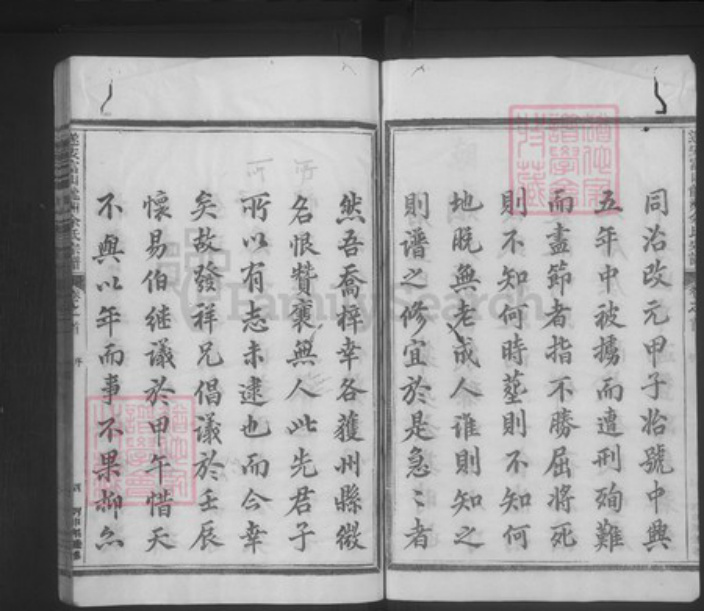 同治改元甲子始號中興
五年中被擄而遭刑殉難
而盡節者指不勝屈將死
則不知何時塟則不知何
地既無老成人誰則知之
則譜之修宜於是急〻者
然吾喬梓幸各獲州縣微
名恨贊襄無人此先君子
所以有志未逮也而今幸
矣故發祥兄倡議於壬辰
懷易伯继議於甲午惜天
不與以年而事不果抑亦
FamilySearch